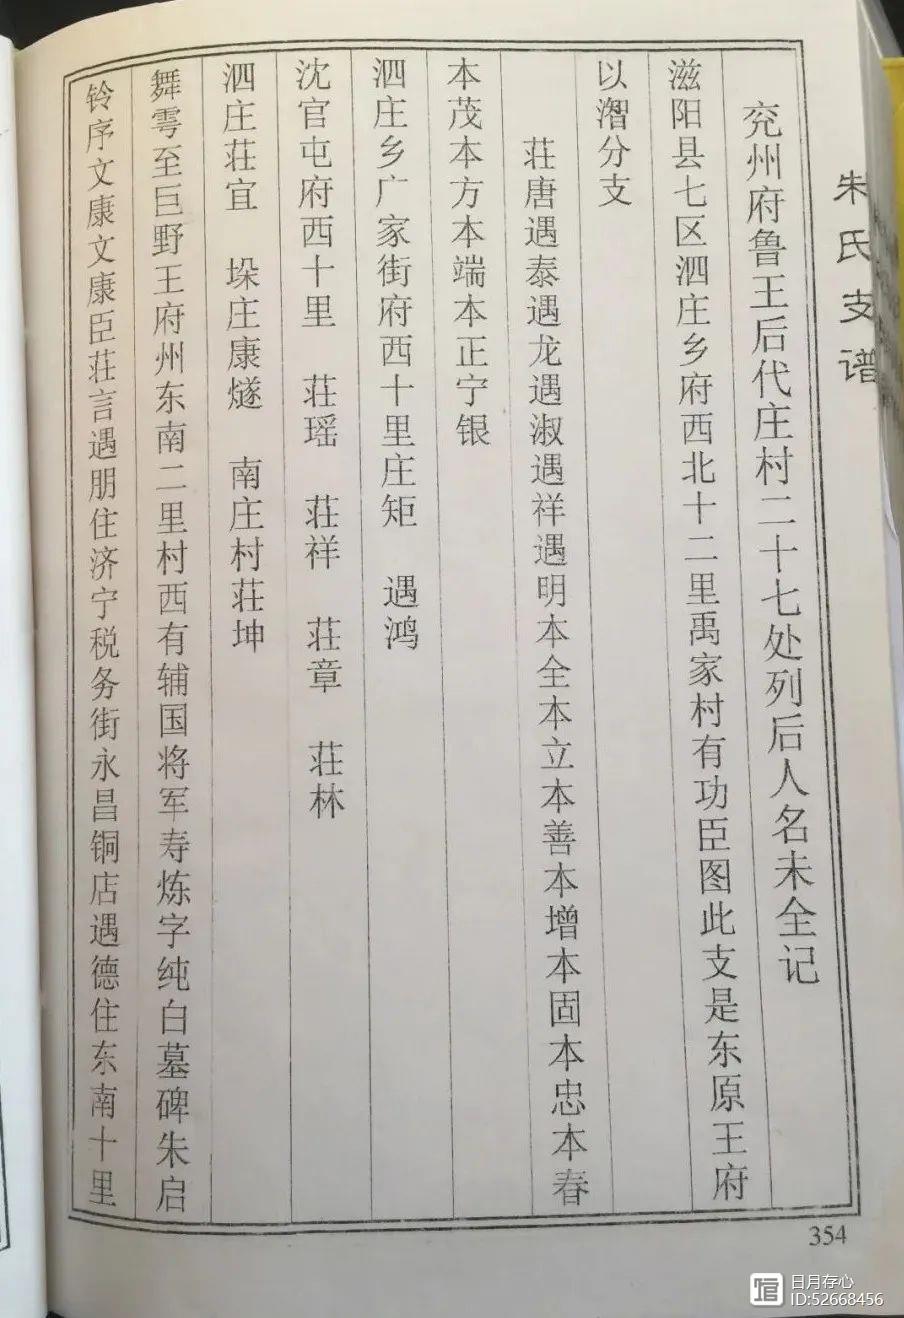 朱氏支谱
兖州府鲁王后代庄村二十七处列后人名未全记
滋阳县七区泗庄乡府西北十二里禹家村有功臣图此支是东原王府
以溍分支
荘唐遇泰遇龙遇淑遇祥遇明本全本立本善本增本固本忠本春
本茂本方本端本正宁银
泗庄乡广家街府西十里庄矩 遇鸿
沈官屯府西十里 荘瑶 荘祥 荘章 荘林
泗庄荘宜 垛庄康燧 南庄村荘坤
舞雩至巨野王府州东南二里村西有辅国将军寿炼字纯白墓碑朱启
铃序文康文康臣荘言遇朋住济宁税务街永昌铜店遇德住东南十里
354
日月存心
ID:52668456